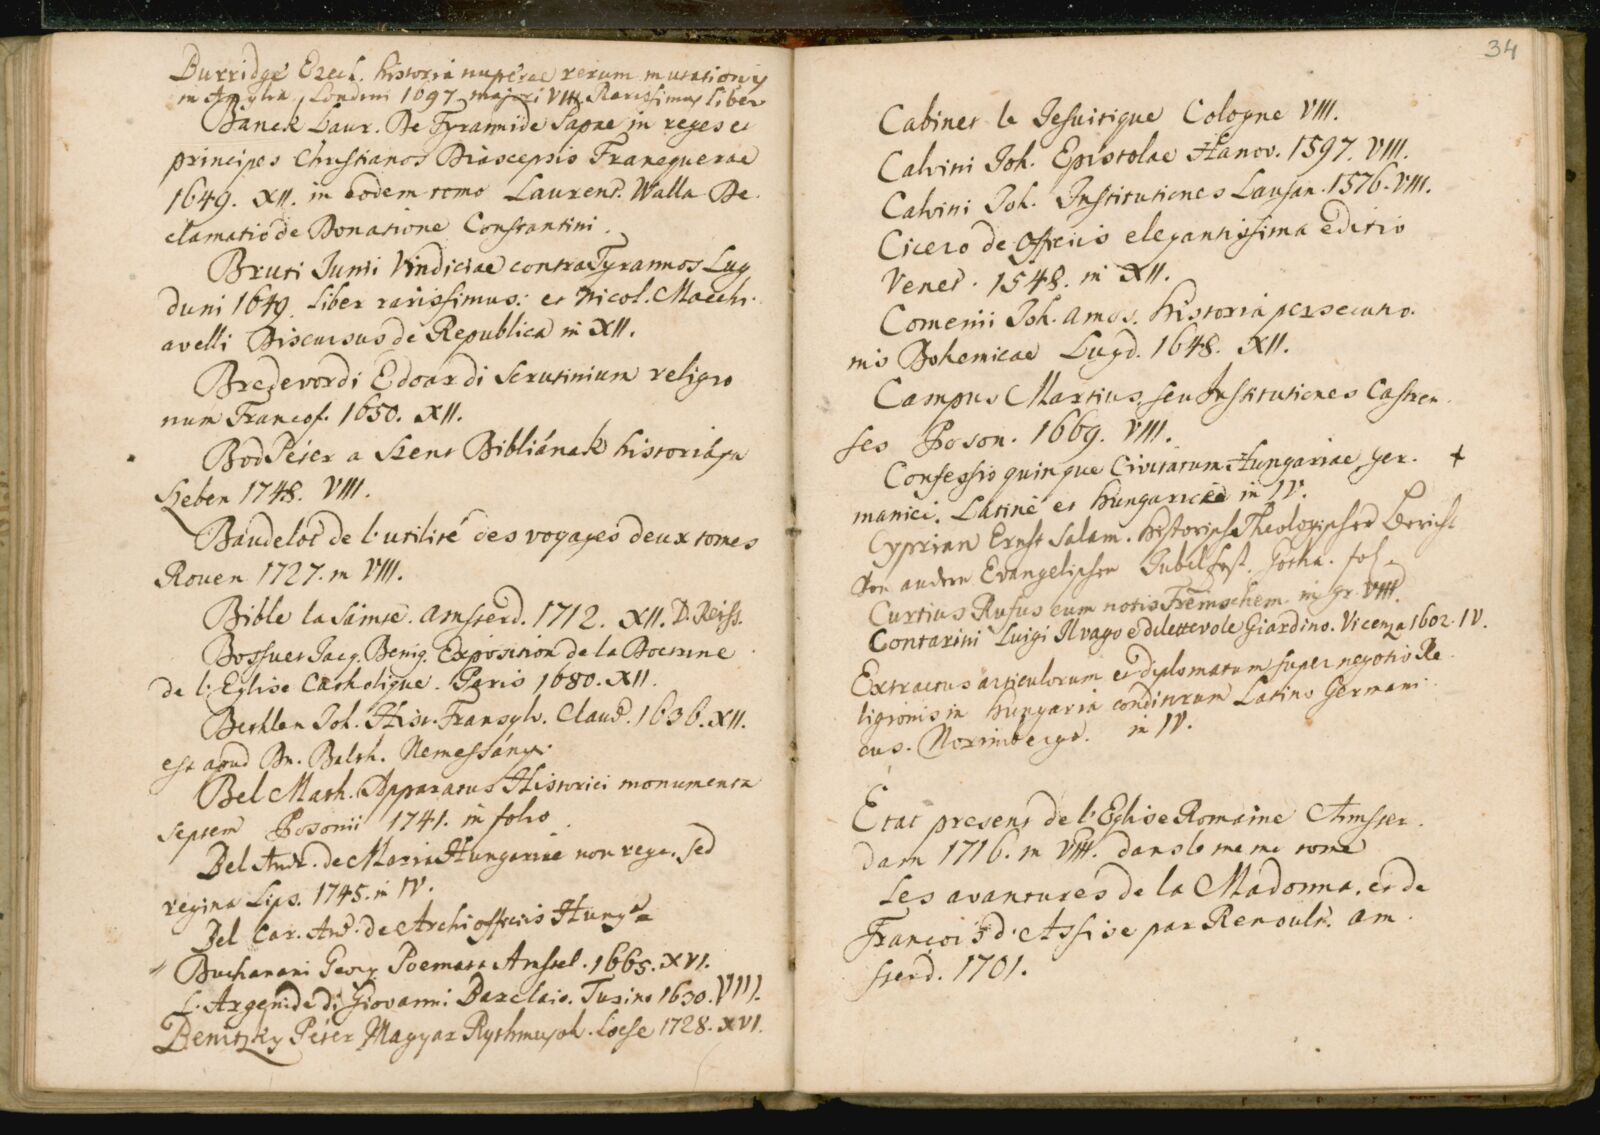 Burridge Ezech. historia nuperae rerum mutationis
in Anglia, Londini 1697 majori VIII. Rarissimus liber
Banck Laur. De Tyrannide Papae in reges et
principes Christianos Diascepsis Franequerae
1649. XII. in eodem tomo Laurent. Walla De
clamatio de Donatione Constantini.
Bruti Junii Vindiciae contra Tyrannos Lug
duni 1649. liber rarissimus: et Nicol. Macchi
avelli Discursus de Republica in XII.
Bredevordi Edoardi Scrutinium religio
num Francof. 1650. XII.
Bod Péter a Szent Bibliának historiája
Szeben 1748. VIII.
Baudelot de l'utilité des voyages deux tomes
Rouen 1727. in VIII.
Bible la Sainte. Amsterd. 1712. XII. D. Reiss.
Bossuet Jacq. Benig. Exposition de la Doctrine
de l'Eglise Catholique. Paris 1680. XII.
Bethlen Joh. Hist. Transylv. Claud. 1636. XII.
est apud Dn. Balth. Nemessányi.
Bel Math. Apparatus Historici monumenta
septem Posonii 1741. in folio.
Bel Andr. de Maria Hungariae non rege, sed
regina Lips. 1745. in IV.
Bel Car. And. de Archiofficiis Hung
Buchanani Georg Poemata Amstel. 1665. XVI.
L'Argenide di Giovanni Barclaio. Turino 1630. VIII.
Benitzky Péter Magyar Rythmusok. Löcse 1728. XVI.
34
Cabinet le Jesuitique Cologne VIII.
Calvini Joh. Epistolae Hanov. 1597. VIII.
Calvini Joh. Institutiones Lausan. 1576. VIII.
Cicero de Officiis elegantissima editio
Venet. 1548. in XII.
Comenii Joh. Amos. historia persecutio
nis Bohemicae Lugd. 1648. XII.
Campus Martius, seu Institutiones Castren
ses Poson. 1669. VIII.
Confessio quinque Civitatum Hungariae ger. +
manicè. Latinè et hungaricè in IV.
Cyprian Ernst Salam. historischer Theologischer Bericht
von andern Evangelischen Jubelfest. Gotha. fol.
Curtius Rufus cum notis Freinschem. in gr. VIII.
Contarini Luigi Il vago e dilettevole Giardino. Vicenza 1602. IV.
Extractus articulorum et diplomatum super negotio Re
ligionis in Hungaria conditorum Latino Germani
cus. Norimbergae. in IV.
Etat present de l'Eglise Romaine Amster.
dam 1716. in VIII. dans le meme tome
Les avantures de la Madonna, et de
François d'Assise par Renoult. Am
sterd. 1701.